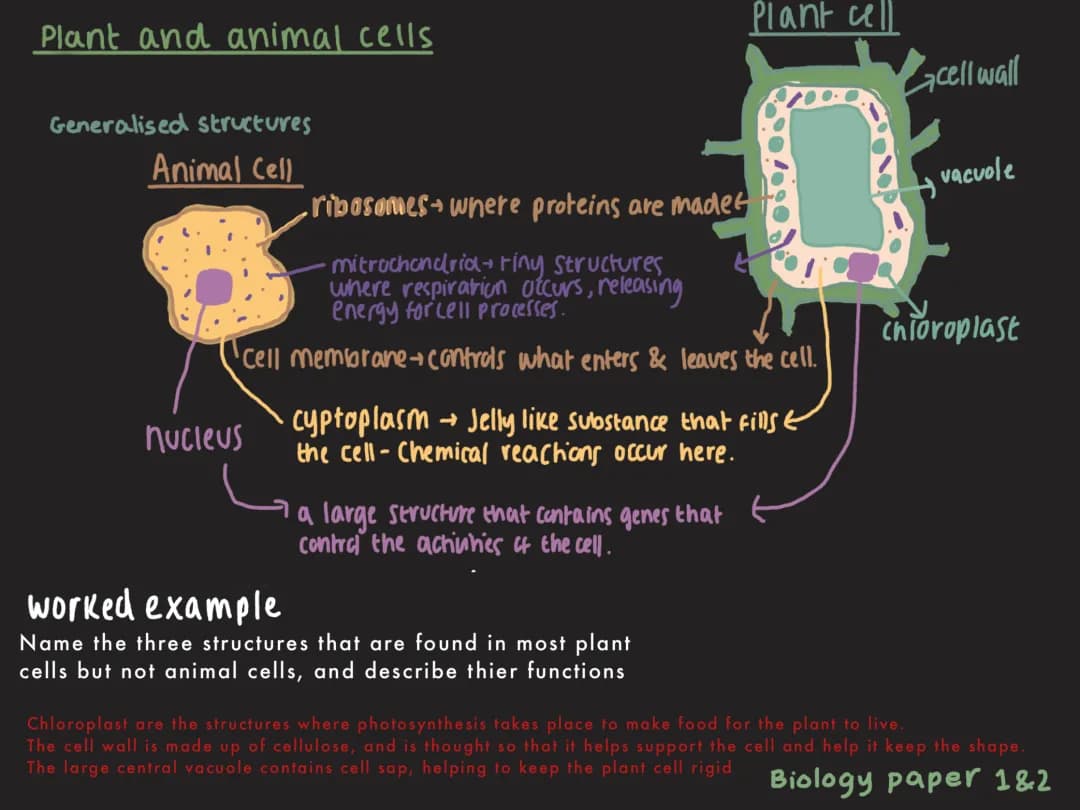 Plant and animal cells
Plant cell
cell wall
Generalised structures
Animal Cell
vacuole
ribosomes→ where proteins are made
mitrochondria→ tiny structures
where respiration occurs, releasing
energy for cell processes.
chloroplast
Cell membrane→controls what enters & leaves the cell.
cyptoplasm → Jelly like substance that fills
the cell - Chemical reactions occur here.
nucleus
a large structure that contains genes that
control the activities of the cell.
worked example
Name the three structures that are found in most plant
cells but not animal cells, and describe thier functions
Chloroplast are the structures where photosynthesis takes place to make food for the plant to live.
The cell wall is made up of cellulose, and is thought so that it helps support the cell and help it keep the shape.
The large central vacuole contains cell sap, helping to keep the plant cell rigid
Biology paper 1&2